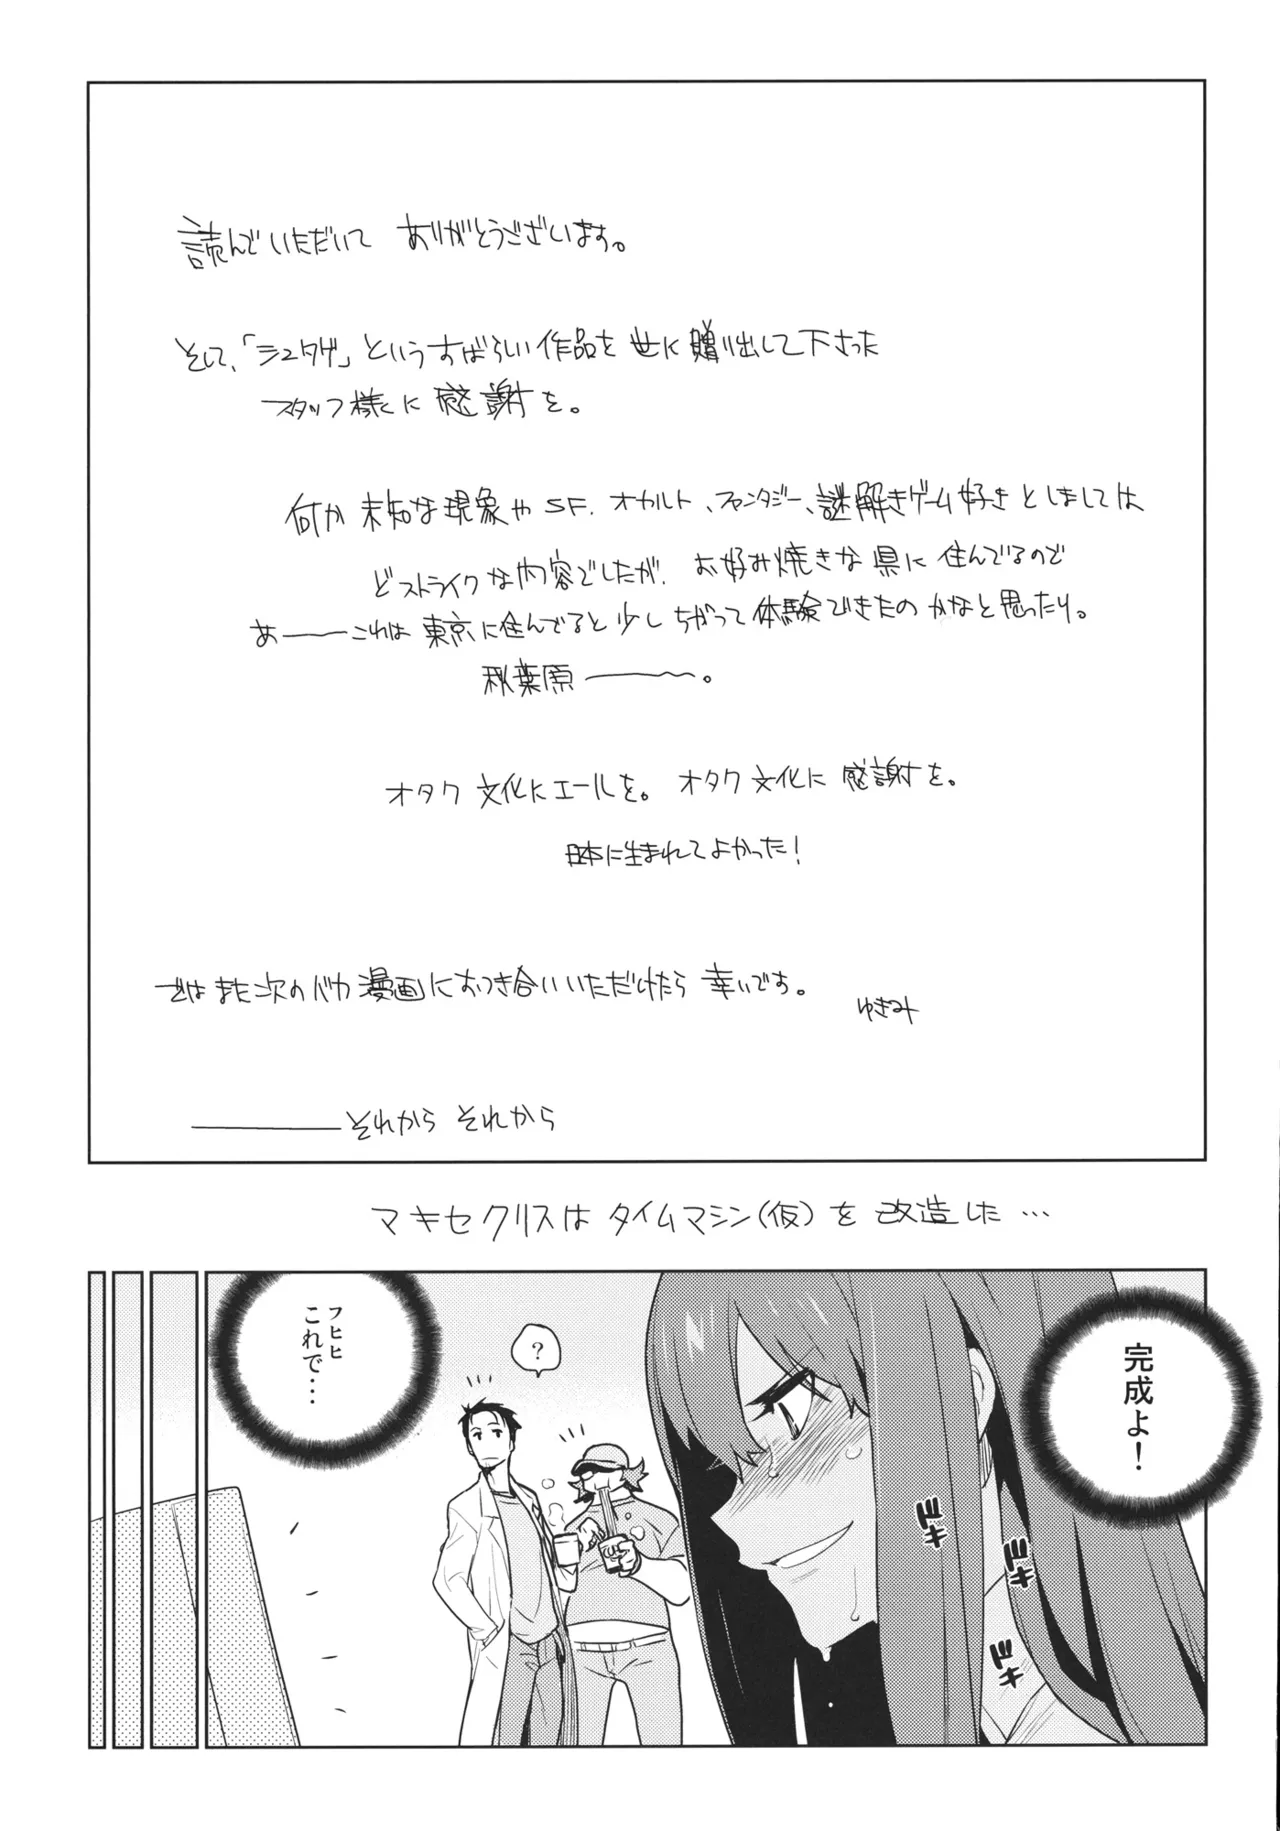 読んでいただいて ありがとうございます。
そして、「シュタゲ」というすばらしい作品を世に贈り出して下さった
スタッフ様くに感謝を。
何か未知な現象やSF、オカルト、ファンタジー、謎解きゲーム好きとしましては
どストライクな内容でしたが、お好み焼きな県に住んでるので
あーーこれは東京に住んでると少しちがって体験できたのかなと思ったり。
秋葉原ーー〜。
オタク文化にエールを。オタク文化に感謝を。
日本に生まれてよかった！
ではまた次のバカ漫画におつき合いいただけたら幸いです。
ゆきみ
———それから それから
マキセクリスはタイムマシン(仮)を改造した…
完成よ！
ドキ
ドキ
ドキ
?
フヒヒ
これで・・・